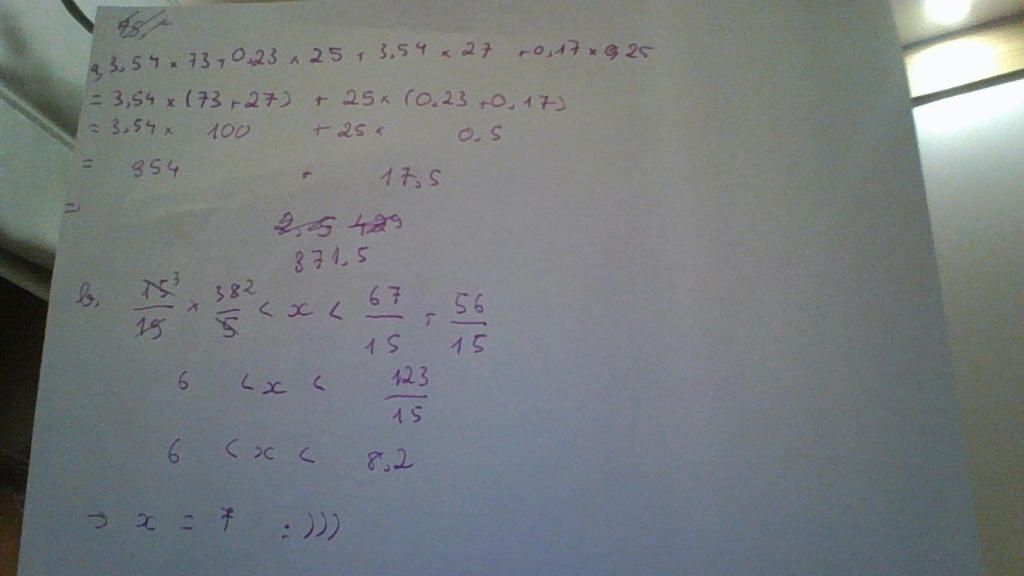 a, 3,54 × 73 + 0,23 × 25 + 3,54 × 27 + 0,17 × 25
= 3,54 × (73 + 27) + 25 × (0,23 + 0,17)
= 3,54 × 100 + 25 × 0,5
= 354 + 17,5
=
371,5
b, 15³/19 × 38²/5 < x < 67/15 + 56/15
6 < x < 123/15
6 < x < 8,2
→ x = 7 :)))